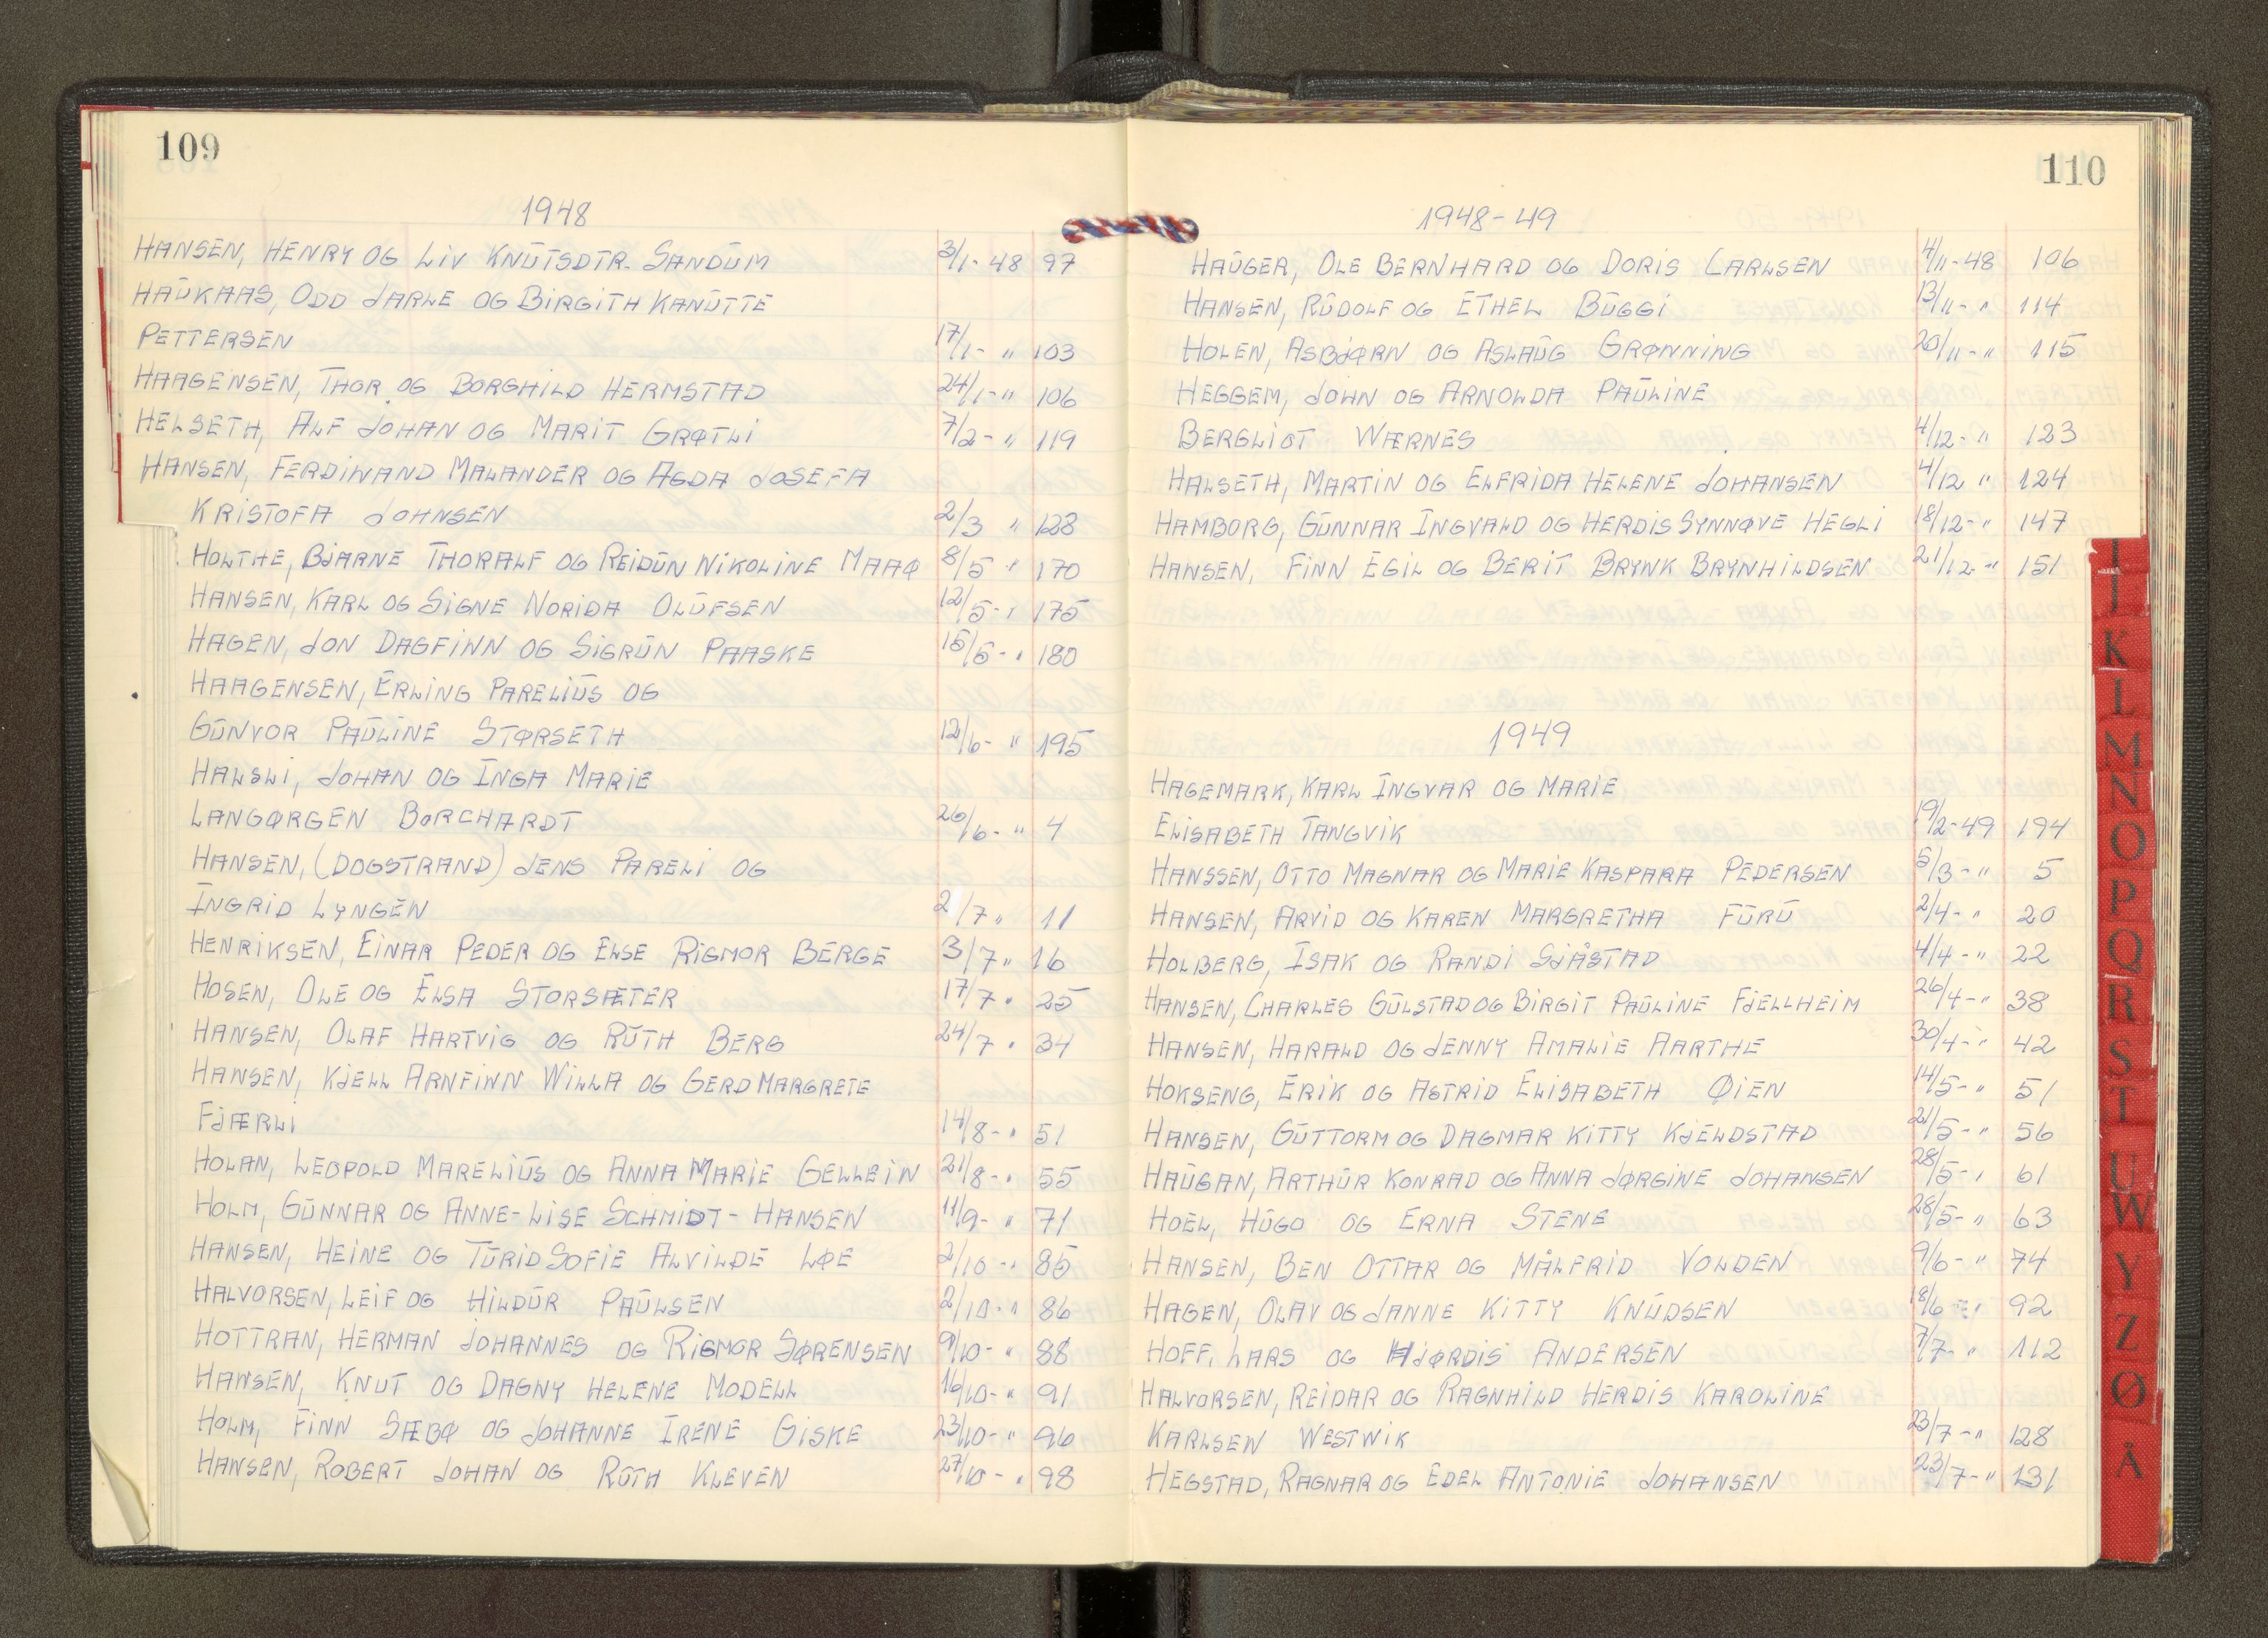 109
1948
HANSEN, HENRY OG LIV KNŪTSDTR. SANDŪM 3/1-48 97
HAŪKAAS, ODD JARLE OG BIRGITH KANŪTTE
PETTERSEN 17/1- " 103
HAAGENSEN, THOR OG BORGHILD HERMSTAD 24/1-" 106
HELSETH, ALF JOHAN OG MARIT GRØTLI 7/2- " 119
HANSEN, FERDINAND MALANDER OG AGDA JOSEFA
KRISTOFA JOHNSEN 2/3 " 128
HOLTHE, BJARNE THORALF OG REIDŪN NIKOLINE MAAØ 8/5 " 170
HANSEN, KARL OG SIGNE NORIDA OLŪFSEN 12/5- " 175
HAGEN, JON DAGFINN OG SIGRŪN PAASKE 15/5- " 180
HAAGENSEN, ERLING PARELIŪS OG
GŪNVOR PAŪLINE STØRSETH 12/6- " 195
HALSLI, JOHAN OG INGA MARIE
LANGØRGEN BORCHARDT 26/6- " 4
HANSEN, (DOGSTRAND) JENS PARELI OG
INGRID LYNGEN 2/7 " 11
HENRIKSEN, EINAR PEDER OG ELSE RIGMOR BERGE 3/7 " 16
HOSEN, OLE OG ELSA STORSÆTER 17/7 " 25
HANSEN, OLAF HARTVIG OG RŪTH BERG 24/7 " 34
HANSEN, KJELL ARNFINN WILLA OG GERD MARGRETE
FJÆRLI 14/8- " 51
HOLAN, LEOPOLD MARELIŪS OG ANNA MARIE GELLEIN 21/8- " 55
HOLM, GŪNNAR OG ANNE-LISE SCHMIDT-HANSEN 11/9- " 71
HANSEN, HEINE OG TŪRID SOFIE ALVILDE LØE 2/10- " 85
HALVORSEN, LEIF OG HILDŪR PAŪLSEN 2/10- " 86
HOTTRAN, HERMAN JOHANNES OG RIGMOR SØRENSEN 9/10- " 88
HANSEN, KNUT OG DAGNY HELENE MODELL 16/10- " 91
HOLM, FINN SÆBØ OG JOHANNE IRENE GISKE 23/10- " 96
HANSEN, ROBERT JOHAN OG RŪTH KLEVEN 27/10- " 98
110
1948-49
HAŪGER, OLE BERNHARD OG DORIS CARLSEN 4/11-48 106
HANSEN, RŪDOLF OG ETHEL BŪGGI 13/11- " 114
HOLEN, ASBJØRN OG ASLAŪG GRØNNING 20/11- " 115
HEGGEM, JOHN OG ARNOLDA PAŪLINE
BERGLIOT WÆRNES 4/12- " 123
HALSETH, MARTIN OG ELFRIDA HELENE JOHANSEN 4/12 " 124
HAMBORG, GŪNNAR INGVALD OG HERDIS SYNNØVE HEGLI 18/12- " 147
HANSEN, FINN EGIL OG BERIT BRYNK BRYNHILDSEN 21/12- " 151
1949
HAGEMARK, KARL INGVAR OG MARIE
ELISABETH TANGVIK 19/2-49 194
HANSSEN, OTTO MAGNAR OG MARIE KASPARA PEDERSEN 5/3- " 5
HANSEN, ARVID OG KAREN MARGRETHA FŪRŪ 2/4- " 20
HOLBERG, ISAK OG RANDI SJÅSTAD 4/4- " 22
HANSEN, CHARLES GŪLSTAD OG BIRGIT PAŪLINE FJELLHEIM 26/4- " 38
HANSEN, HARALD OG JENNY AMALIE AARTHE 30/4- " 42
HOKSENG, ERIK OG ASTRID ELISABETH ØIEN 14/5- " 51
HANSEN, GŪTTORM OG DAGMAR KITTY KJELDSTAD 21/5- " 56
HAŪGAN, ARTHŪR KONRAD OG ANNA JØRGINE JOHANSEN 28/5- " 61
HOEL, HŪGO OG ERNA STENE 28/5- " 63
HANSEN, BEN OTTAR OG MÅLFRID VOLDEN 9/6- " 74
HAGEN, OLAV OG JANNE KITTY KNŪDSEN 18/6 - " 92
HOFF, LARS OG HJØRDIS ANDERSEN 7/7- " 112
HALVORSEN, REIDAR OG RAGNHILD HERDIS KAROLINE
KARLSEN WESTWIK 23/7- " 128
HEGSTAD, RAGNAR OG EDEL ANTONIE JOHANSEN 23/7- " 131
I
J
K
L
M
N
O
P
Q
R
S
T
U
W
Y
Z
Ø
Å